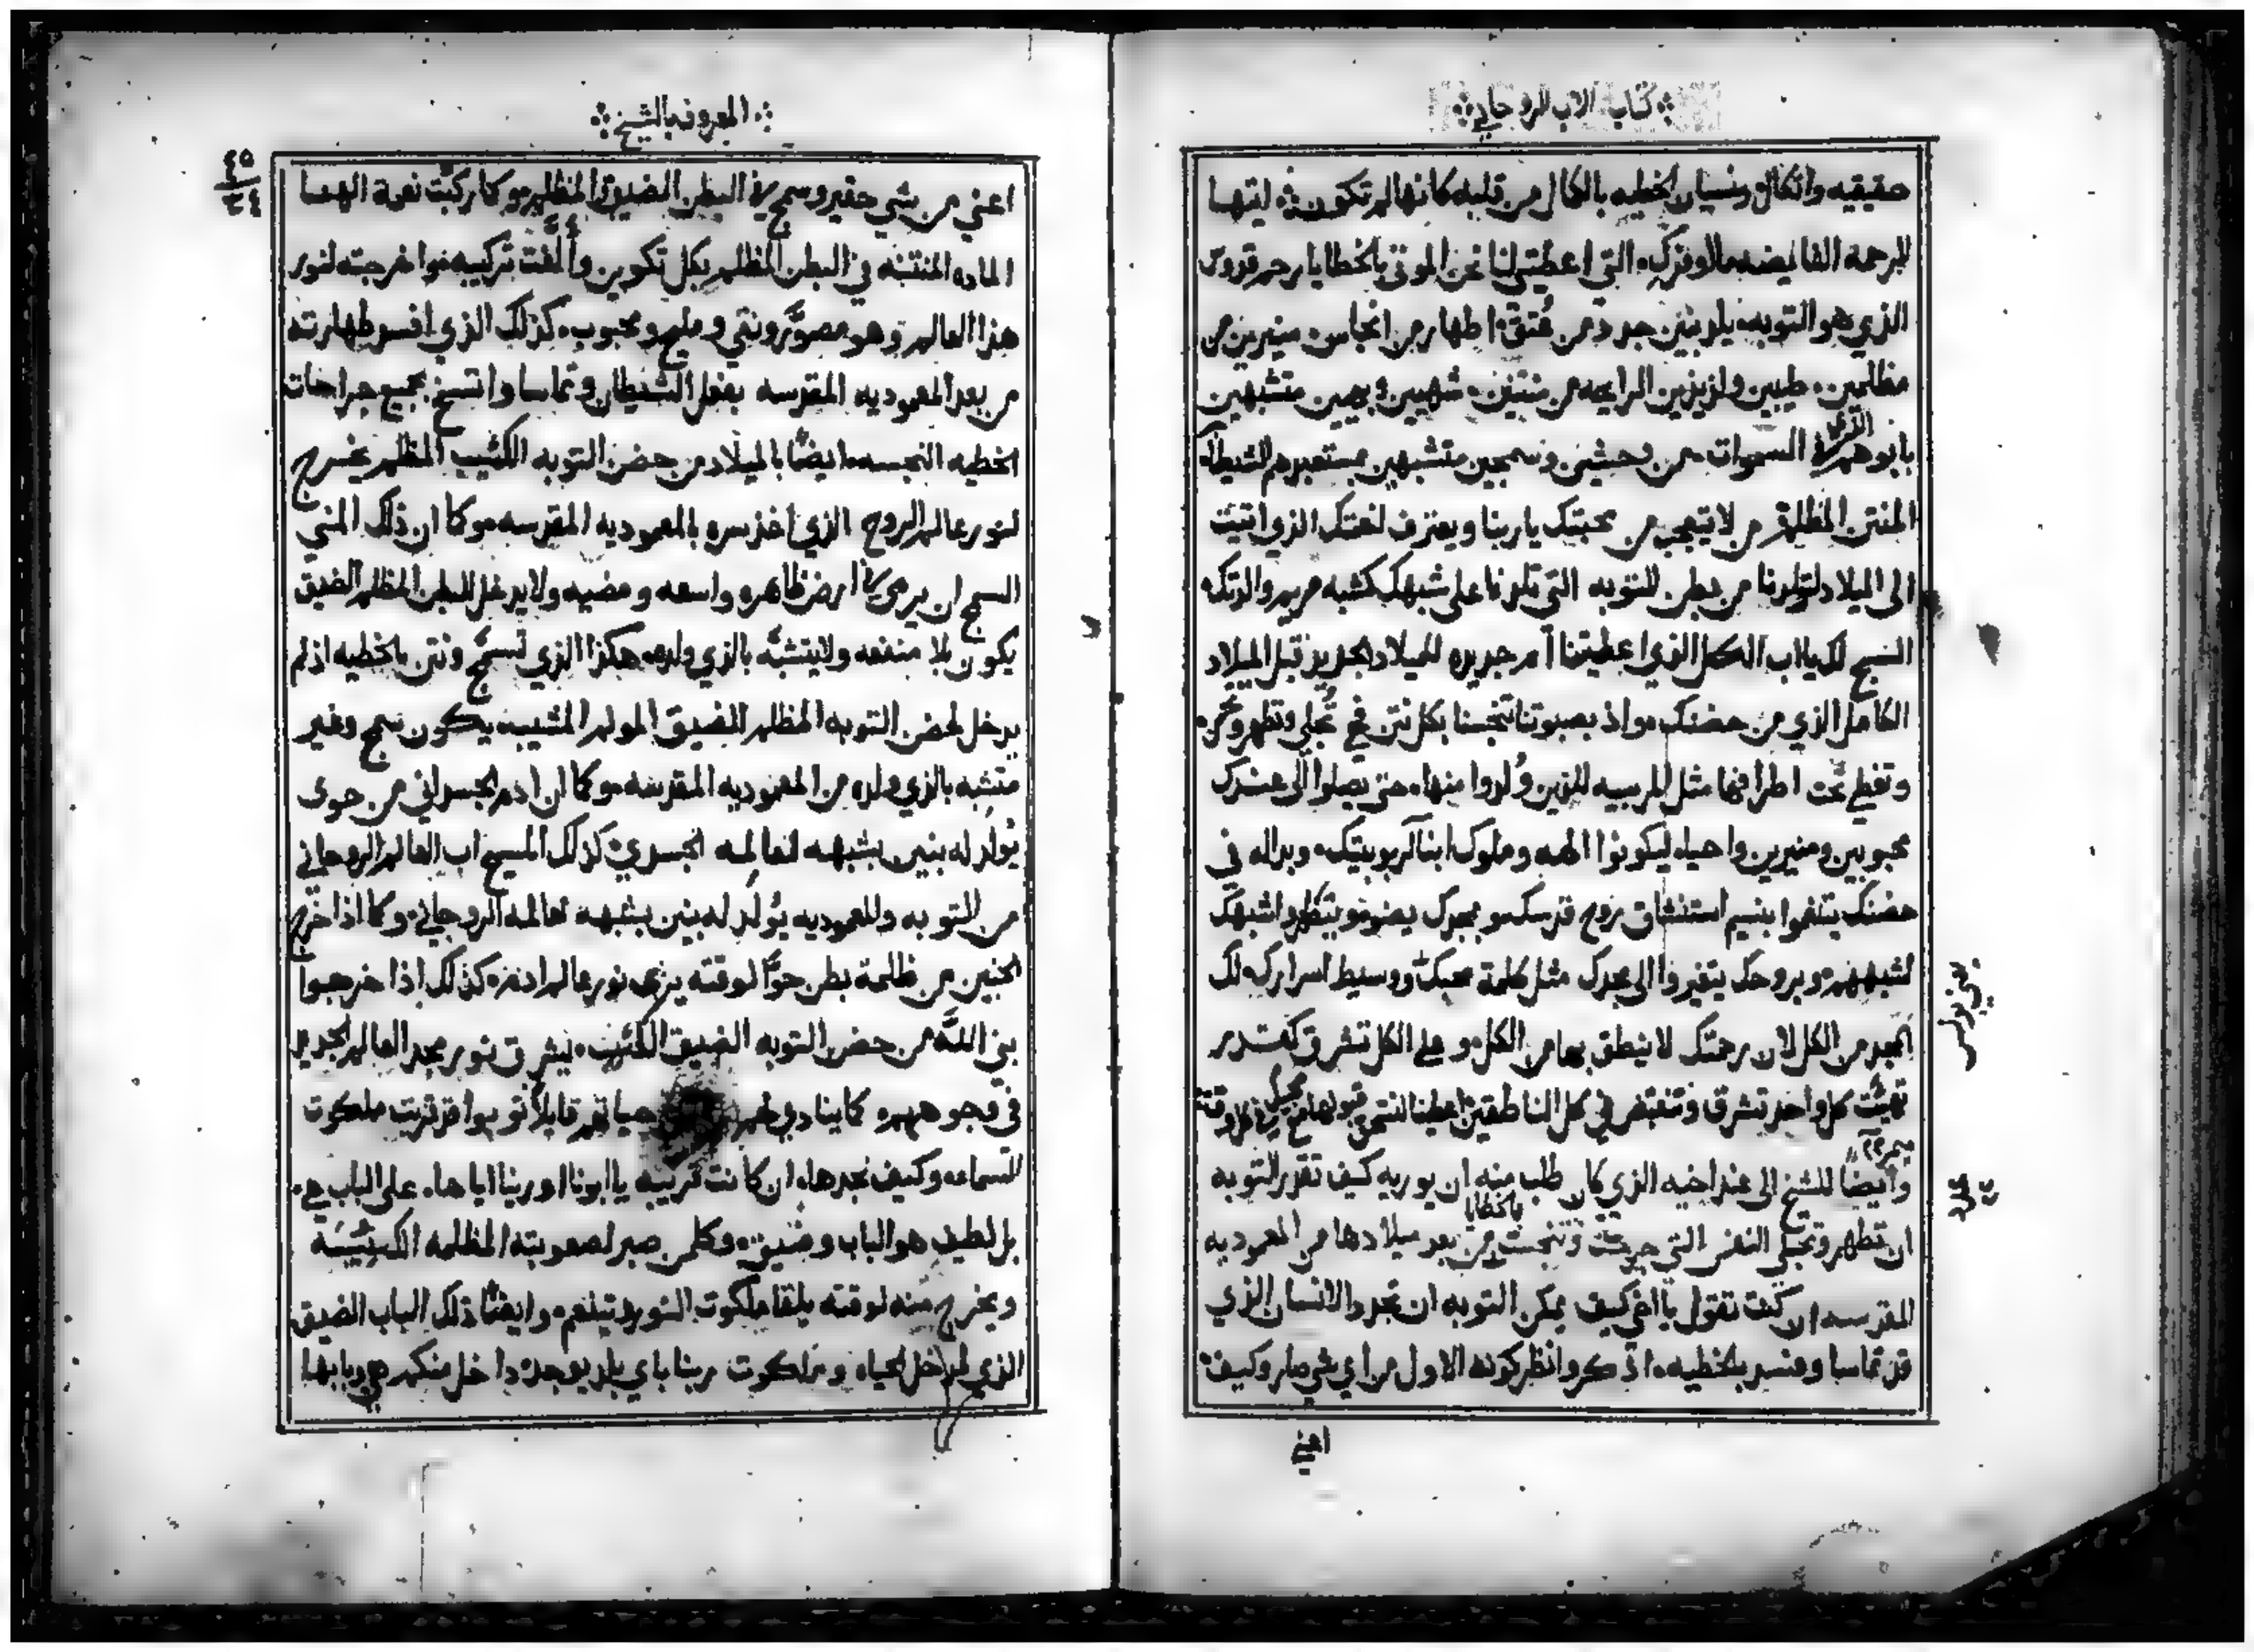 كتاب الاب الروحاني
حقيقيه واتكال ونسيان الخطيه بالكمال من قلبه كانها لم تكون ايتها
الرحمه الفايضه التي اعطيتي لنا نحن الموتى بالخطايا رحم قدوس
الذي هو التوبه يلد بنين جدد من عُتق اطهار من انجاس منيرين من
مظلمين طيبين ولذيذين الرايحه من منتنين شهيين وبهيين متشبهين
بابوهم الذي في السموات من وحشين وسمجين متشبهين بمستعبدهم الشيطان
المنتن المظلم من لا يتعجب من محبتك يا ربنا ويعترف لنعمتك الذي اتيت
الى الميلاد لتولدنا من بطن التوبه التي تلدنا على شبهك كشبه مريم والدتك
السبح لك يا اب الكل الذي اعطيتنا ام جديده للميلاد الجديد قبل الميلاد
الكامل الذي من حضنك واذ بصبوتنا تنجسنا بكل نتن في تجلي وتطهر
وتغطي تحت اطرافها مثل المربيه للذين وُلدوا منها حتى يصلوا الى عندك
محبوبين ومنيرين واحيا ليكونوا الهه وملوك ابنا لربوبيتك وبداله في
حضنك يتنعموا بنسيم استنشاق روح قدسك وبمجدك يضوو ويتطهروا شبهك
لشبههم وبروحك يتغيروا الى مجدك مثل كلمة محبك ووسيط اسرارك لك
المجد من الكل لان رحمتك لا ينطق بها من الكل وعلى الكل تشرق كقدر
تهيئت كل واحد تشرق وتغتض في كل الناطقين اعطينا لنستحق قبولها
ميمر
وايضًا للشيخ الى عند اخيه الذي كان طلب منه ان يوريه كيف تقدر التوبه
ان تطهر وتجلي النفس التي جرحت وتنجست بالخطايا من بعد ميلادها من المعموديه
المقدسه ان كنت تقول يا اخي كيف يمكن التوبه ان تجدد الانسان الذي
قد تماسا وفسد بالخطيه اذكر وانظر كونه الاول من اي شي صار وكيف
اعني
يعني بولس
المعروف بالشيخ
٤٥
٣٤
اعني من شي حقير وسمج في البطن الضيق المظلم وكما ركبت نعمة الهنا
الماده المنتنه في البطن المظلم بكل تكوين وألَّفت تركيبه واخرجته لنور
هذا العالم وهو مصوَّر ونقي ومليح ومحبوب كذلك الذي افسد طهارته
من بعد المعموديه المقدسه بفعل الشيطان وتماسا واتسخ بجميع جراحات
الخطيه النجسه ايضًا بالميلاد من حضن التوبه الكئيب المظلم يخرج
لنور عالم الروح الذي اخذ سره بالمعموديه المقدسه وكما ان ذلك المني
السمج ان يرمى في ارض ظاهره واسعه ومضيه ولا يدخل للبطن المظلم الضيق
يكون بلا منفعه ولا يتشبَّه بالذي ولده هكذا الذي تسمَّج ونتن بالخطيه اذ لم
يدخل لحضن التوبه المظلم الضيق المولم يكون سمج وغير
متشبه بالذي ولده من المعموديه المقدسه وكما ان ادم الجسداني من حوى
يُولَد له بنين بشبهه لعالمه الجسدي كذلك المسيح اب العالم الروحاني
من التوبه والمعموديه يُولَد له بنين بشبهه لعالمه الروحاني وكما اذا خرج
الجنين من ظلمة بطن حوَّا لوقته يرى نور عالم ادم كذلك اذا خرجوا
بني اللَّه من حضن التوبه الضيق الكئيب يشرق نور مجد العالم الجديد
في وجوههم كما ينادي لهم حياتهم قايلًا توبوا قد قربت ملكوت
السماء وكيف نجدها ان كانت قريبه يا ابونا اورينا اياها على الباب هي
بل لطيف هو الباب وضيق وكلمن صبر لصعوبته المظلمه الكئيبه
ويخرج منه لوقته يلقا ملكوت النور ويتنعم وايضًا ذلك الباب الضيق
الذي لمدخل الحياه وملكوت ربنا باي بلد يوجد داخل منكم هي وبابها